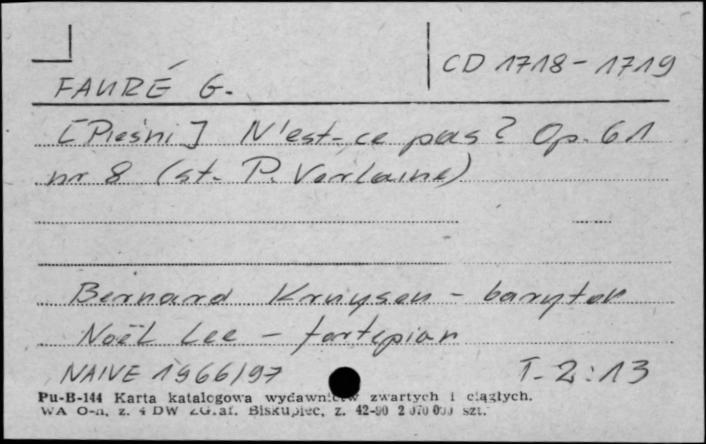 CD 1718-1719
FAURÉ G.
[Pieśni] N'est-ce pas? Op. 61
nr 8 (sł. P. Verlaine)
Bernard Kruysen - baryton
Noël Lee - fortepian
NAIVE 1966/97 T-2:13
Pu-B-144 Karta katalogowa wydawnictw zwartych i ciągłych.
WA O-n, z. 4 DW ZG.af. Biskupiec, z. 42-90 2 070 000 szt.